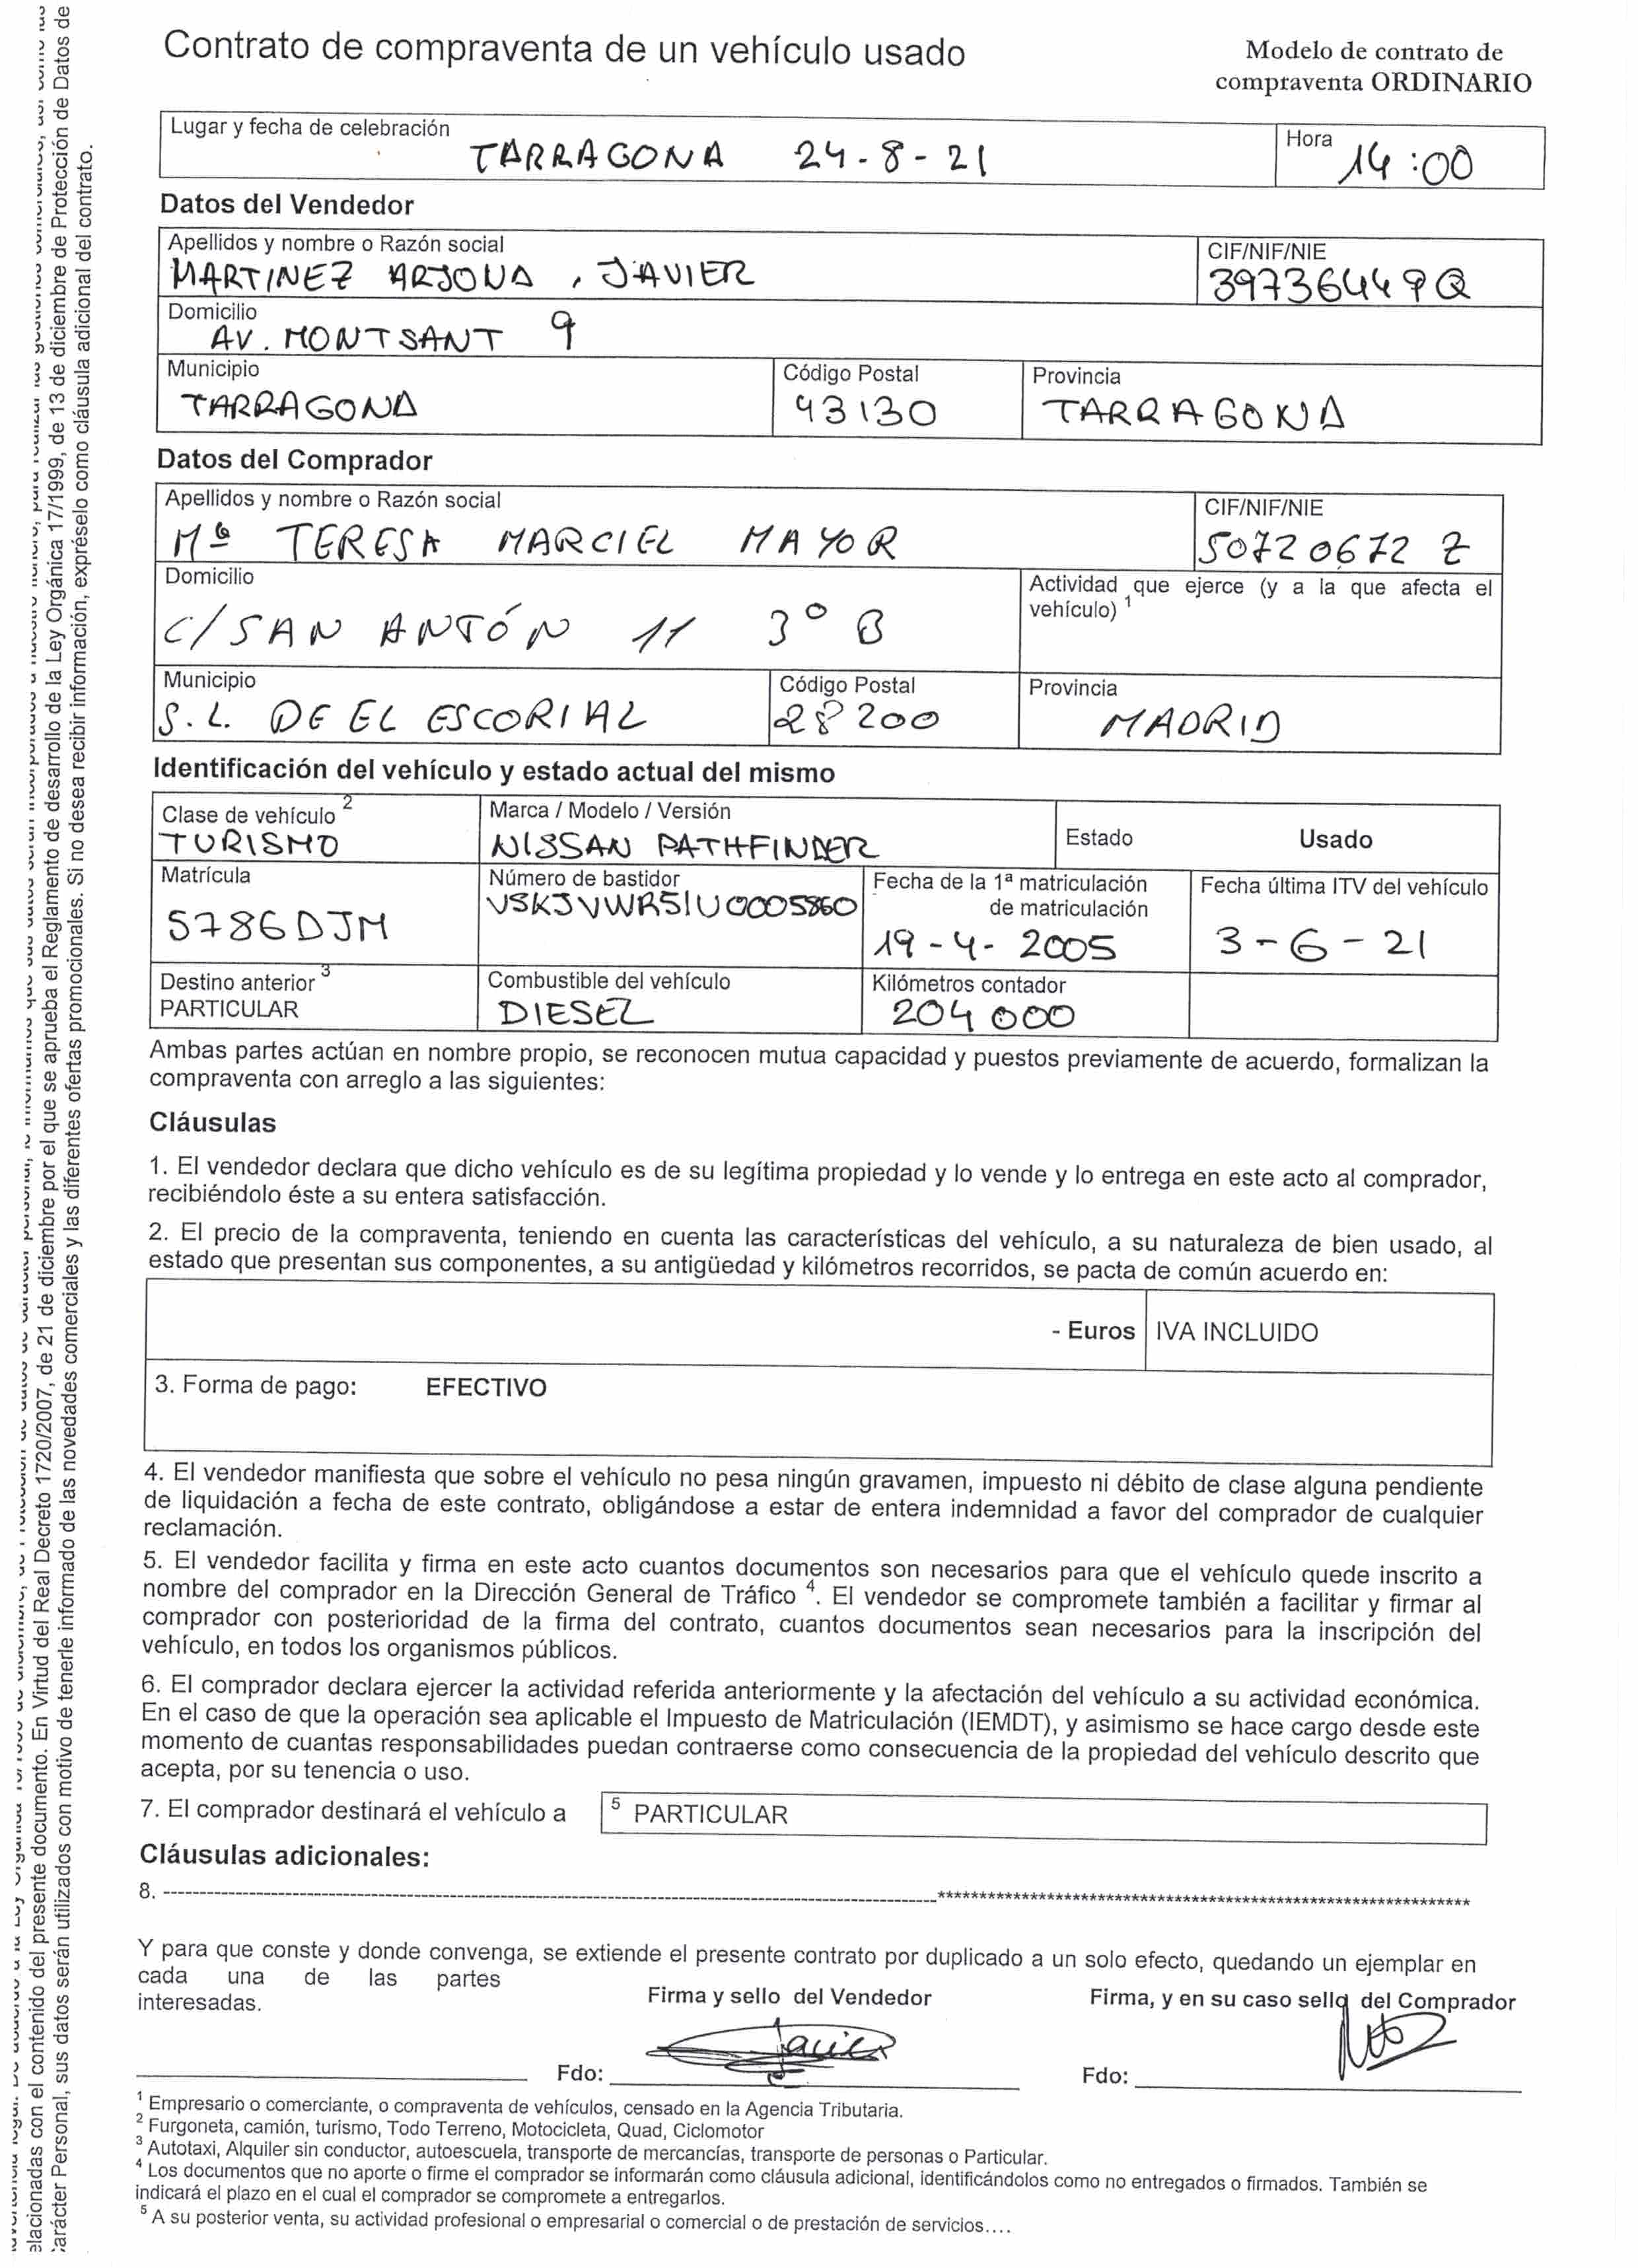 Contrato de compraventa de un vehículo usado
Modelo de contrato de
compraventa ORDINARIO
Lugar y fecha de celebración
TARRAGONA 24-8-21
Hora
14:00
Datos del Vendedor
Apellidos y nombre o Razón social
MARTINEZ ARJONA, JAVIER
CIF/NIF/NIE
39736449Q
Domicilio
AV. MONTSANT 9
Municipio
TARRAGONA
Código Postal
43130
Provincia
TARRAGONA
Datos del Comprador
Apellidos y nombre o Razón social
Mª TERESA MARCIEL MAYOR
CIF/NIF/NIE
50720672 Z
Domicilio
C/ SAN ANTÓN 11 3º B
Actividad que ejerce (y a la que afecta el
vehículo) 1
Municipio
S.L. DE EL ESCORIAL
Código Postal
28200
Provincia
MADRID
Identificación del vehículo y estado actual del mismo
Clase de vehículo 2
TURISMO
Marca / Modelo / Versión
NISSAN PATHFINDER
Estado
Usado
Matrícula
5786DJM
Número de bastidor
VSKJVWR51U0005860
Fecha de la 1ª matriculación
de matriculación
19-4-2005
Fecha última ITV del vehículo
3-6-21
Destino anterior 3
PARTICULAR
Combustible del vehículo
DIESEL
Kilómetros contador
204000
Ambas partes actúan en nombre propio, se reconocen mutua capacidad y puestos previamente de acuerdo, formalizan la
compraventa con arreglo a las siguientes:
Cláusulas
1. El vendedor declara que dicho vehículo es de su legítima propiedad y lo vende y lo entrega en este acto al comprador,
recibiéndolo éste a su entera satisfacción.
2. El precio de la compraventa, teniendo en cuenta las características del vehículo, a su naturaleza de bien usado, al
estado que presentan sus componentes, a su antigüedad y kilómetros recorridos, se pacta de común acuerdo en:
- Euros
IVA INCLUIDO
3. Forma de pago: EFECTIVO
4. El vendedor manifiesta que sobre el vehículo no pesa ningún gravamen, impuesto ni débito de clase alguna pendiente
de liquidación a fecha de este contrato, obligándose a estar de entera indemnidad a favor del comprador de cualquier
reclamación.
5. El vendedor facilita y firma en este acto cuantos documentos son necesarios para que el vehículo quede inscrito a
nombre del comprador en la Dirección General de Tráfico 4. El vendedor se compromete también a facilitar y firmar al
comprador con posterioridad de la firma del contrato, cuantos documentos sean necesarios para la inscripción del
vehículo, en todos los organismos públicos.
6. El comprador declara ejercer la actividad referida anteriormente y la afectación del vehículo a su actividad económica.
En el caso de que la operación sea aplicable el Impuesto de Matriculación (IEMDT), y asimismo se hace cargo desde este
momento de cuantas responsabilidades puedan contraerse como consecuencia de la propiedad del vehículo descrito que
acepta, por su tenencia o uso.
7. El comprador destinará el vehículo a
5 PARTICULAR
Cláusulas adicionales:
8. ----------------------------------------------------------------------------------------------------*****************************************************************
Y para que conste y donde convenga, se extiende el presente contrato por duplicado a un solo efecto, quedando un ejemplar en
cada una de las partes
interesadas.
Firma y sello del Vendedor
Firma, y en su caso sello del Comprador
Javier
Fdo:
Fdo:
1 Empresario o comerciante, o compraventa de vehículos, censado en la Agencia Tributaria.
2 Furgoneta, camión, turismo, Todo Terreno, Motocicleta, Quad, Ciclomotor
3 Autotaxi, Alquiler sin conductor, autoescuela, transporte de mercancías, transporte de personas o Particular.
4 Los documentos que no aporte o firme el comprador se informarán como cláusula adicional, identificándolos como no entregados o firmados. También se
indicará el plazo en el cual el comprador se compromete a entregarlos.
5 A su posterior venta, su actividad profesional o empresarial o comercial o de prestación de servicios....
elacionadas con el contenido del presente documento. En Virtud del Real Decreto 1720/2007, de 21 de diciembre por el que se aprueba el Reglamento de desarrollo de la Ley Orgánica 17/1999, de 13 de diciembre de Protección de Datos de
arácter Personal, sus datos serán utilizados con motivo de tenerle informado de las novedades comerciales y las diferentes ofertas promocionales. Si no desea recibir información, expréselo como cláusula adicional del contrato.